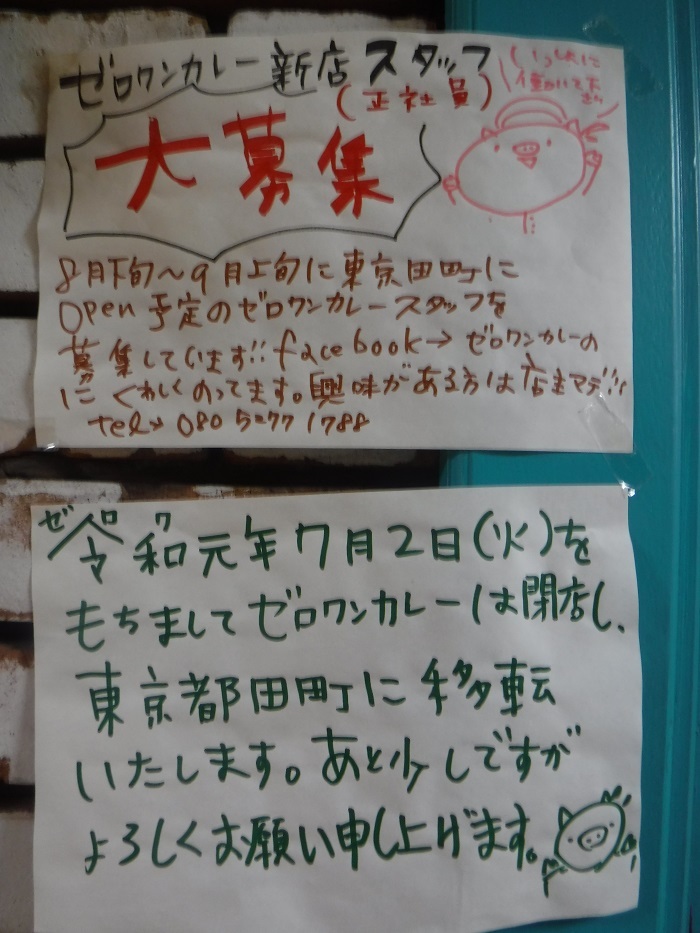 ゼロワンカレー新店スタッフ
(正社員)
いっしょに
働いてます
大募集
8月下旬〜9月上旬に東京田町に
Open予定のゼロワンカレースタッフを
募集しています!!facebook→ゼロワンカレーの
にくわしくのってます。興味がある方は店主マデ!!
tel→080 5277 1788
ゼロワ
令和元年7月2日(火)を
もちましてゼロワンカレーは閉店し、
東京都田町に移転
いたします。あと少しですが
よろしくお願い申し上げます。